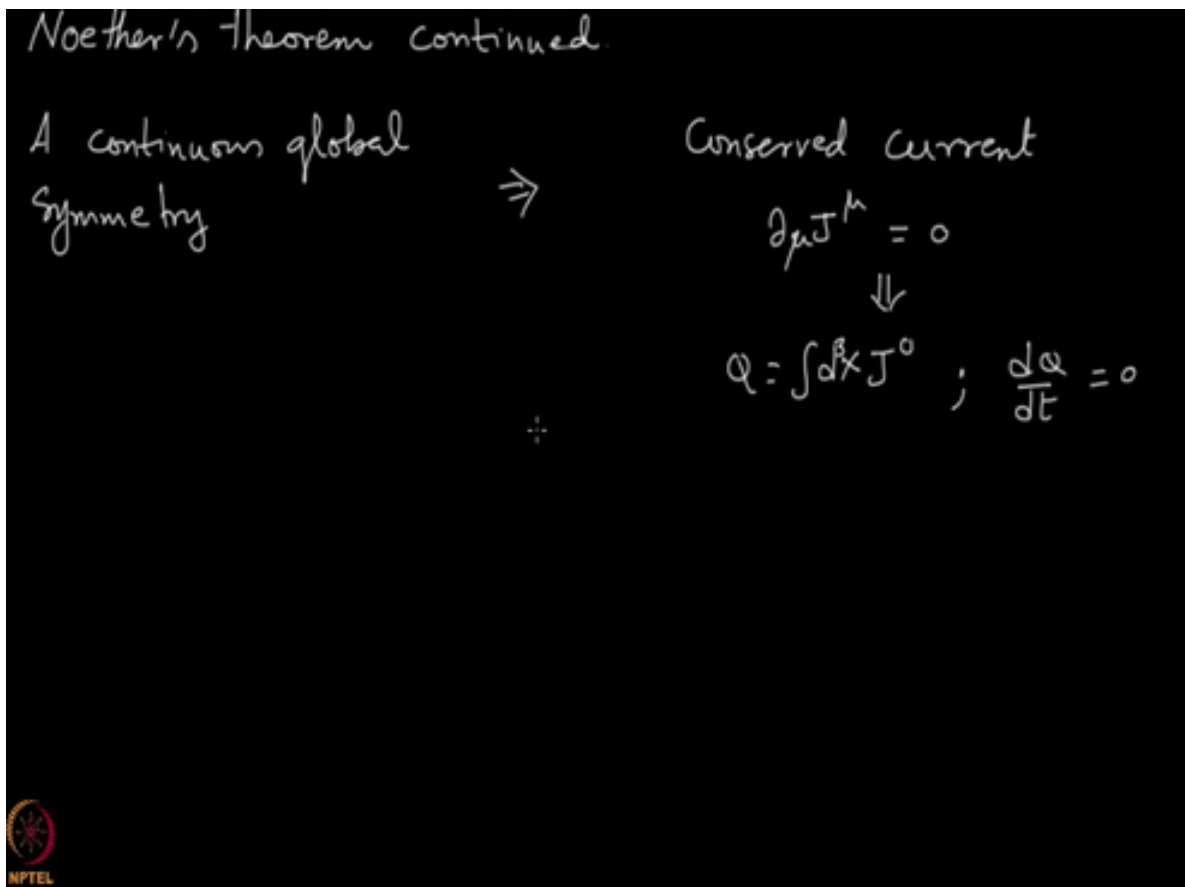 Noether's theorem continued.
A continuous global
Symmetry ⇒
Conserved current
∂μJ^μ = 0
⇓
Q = ∫d³x J⁰ ; dQ/dt = 0
NPTEL